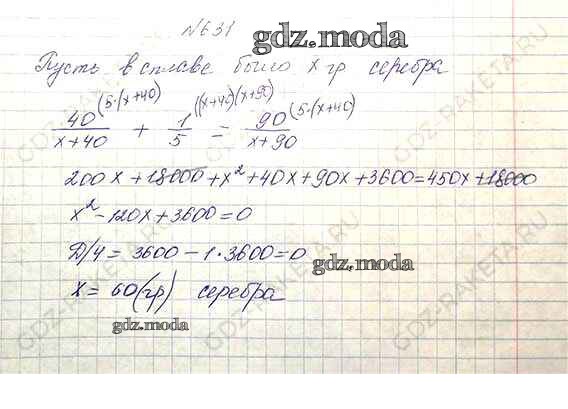 №631 gdz.moda
Пусть в сплаве было x гр серебра
40^(5·(x+40)/(x+40) + 1^((x+45)(x+90)/5 = 90^(5·(x+40)/(x+90)
200x + 18000 + x² + 40x + 90x + 3600 = 450x + 18000
x² - 120x + 3600 = 0
Д/4 = 3600 - 1·3600 = 0
gdz.moda
x = 60(гр) серебра
gdz.moda
GDZ-RAKETA.RU
GDZ-RAKETA.RU
GDZ-RAKETA.RU
GDZ-RAKETA.RU